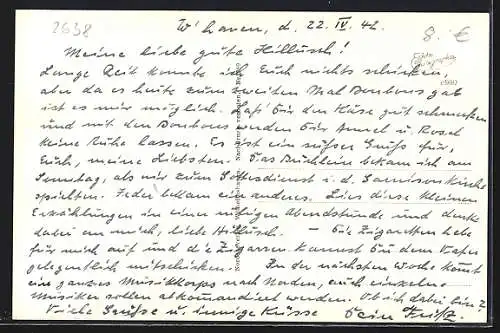 2638
W'haven, d. 22. IV. 42.
8.-€
Meine liebe gute Hillusch!
Lange Zeit konnte ich Euch nichts schicken,
aber da es heute zum zweiten Mal Bonbons gab
ist es mir möglich. Laß' Dir den Käse gut schmecken
und mit den Bonbons werden Dir u. Rosel
keine Ruhe lassen. Es ist ein süßer Gruß für
Euch, meine Liebsten. Das Büchlein bekam ich am
Sonntag, als wir zum Gottesdienst i. d. Garnisonkirche
spielten. Jeder bekam ein anderes. Lies diese kleinen
Erzählungen in einer ruhigen Abendstunde und denke
dabei an mich, liebe Hillusch. — Die Zigaretten hebe
für mich auf und die Zigarren kannst Du dem Vater
gelegentlich mitschicken. In der nächsten Woche kommt
ein ganzes Musikkorps nach Norden, auch einzelne
Musiker sollen abkommandiert werden. Ob ich dabei bin?
Viele Grüße u. innige Küsse Dein Fritz.